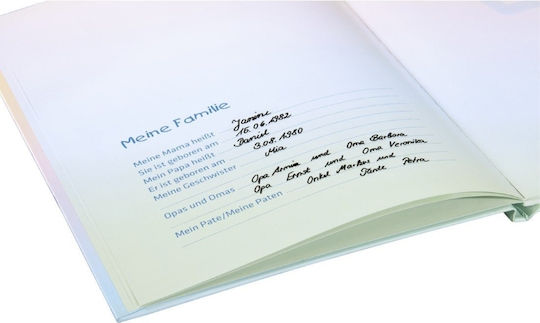 Meine Familie
Meine Mama heißt Janine
Sie ist geboren am 16.06.1982
Mein Papa heißt Daniel
Er ist geboren am 3.08.1980
Meine Geschwister Mia
Opas und Omas Opa Armin und Oma Barbara
Opa Ernst und Oma Veronika
Mein Pate/Meine Paten Onkel Markus und
Tante Petra